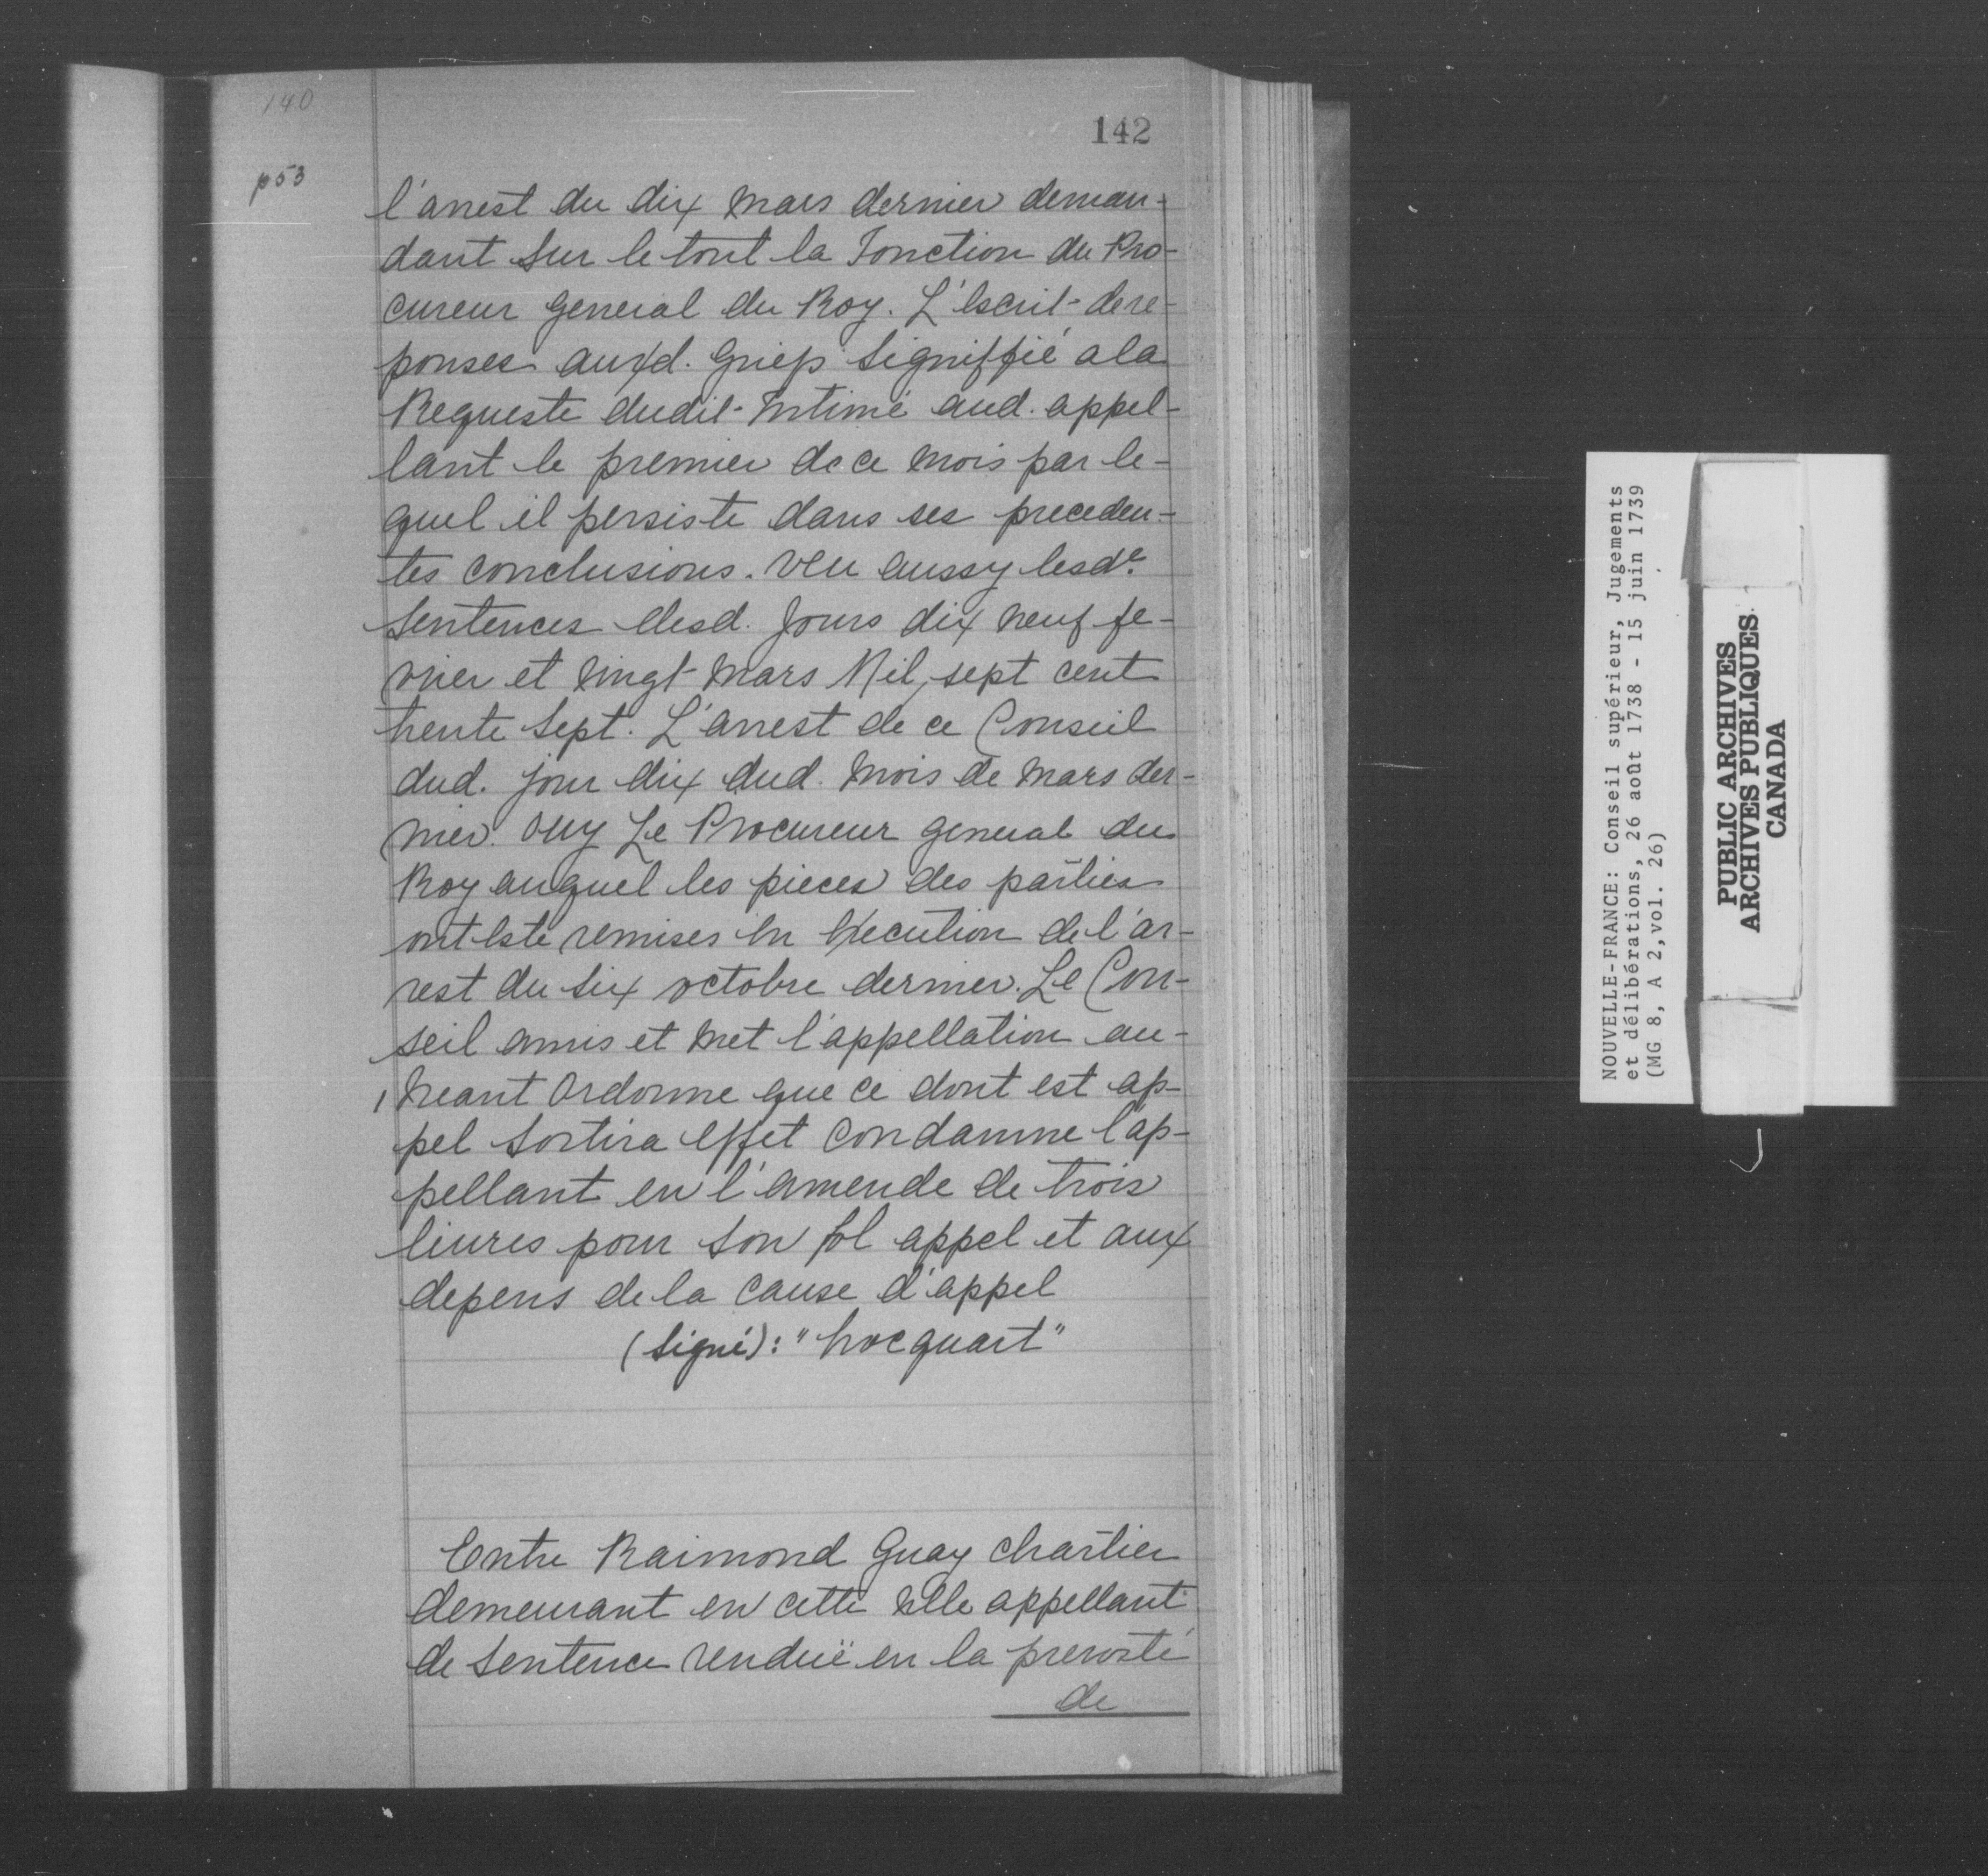 140
142
p53
l'arrest du dix Mars dernier deman-
dant Sur le tout la Jonction du Pro-
cureur general du Roy. L'Escrit de re-
ponses auxd. Griefs Signiffié a la
Requeste dudit Intimé aud. appel-
lant le premier de ce Mois par le-
quel il persiste dans ses preceden-
tes Conclusions. Veu aussy lesdes
Sentences desd. Jours dix neuf fe-
vrier et Vingt Mars Mil, sept cent
trente Sept. L'arrest de ce Conseil
dud. jour dix dud. Mois de Mars der-
nier. Ouy Le Procureur general du
Roy auquel les pieces des parties
ont Esté remises En Execution de l'ar-
rest du Six octobre dernier. Le Con-
seil a mis et Met l'appellation au-
Neant Ordonne que ce dont est ap-
pel Sortira Effet Condamne l'ap-
pellant en l'amende de trois
livres pour Son fol appel et aux
depens de la Cause d'appel
(Signé): "hocquart"
Entre Raimond Guay Chartier
demeurant en cette Ville appellant
de Sentence renduë en la prevosté
de
NOUVELLE-FRANCE: Conseil supérieur, Jugements
et délibérations, 26 août 1738 - 15 juin 1739
(MG 8, A 2, vol. 26)
PUBLIC ARCHIVES
ARCHIVES PUBLIQUES
CANADA